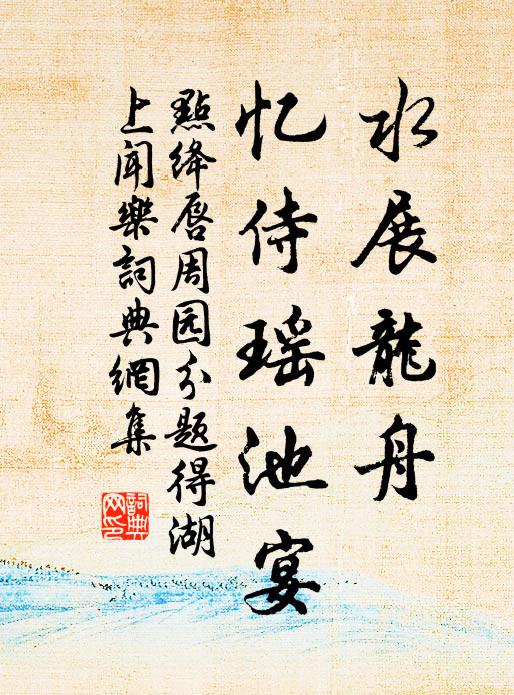 水展龍舟
忆侍瑶池宴
點绛唇周园分题得湖
上闻樂詞典網集
詞典网印